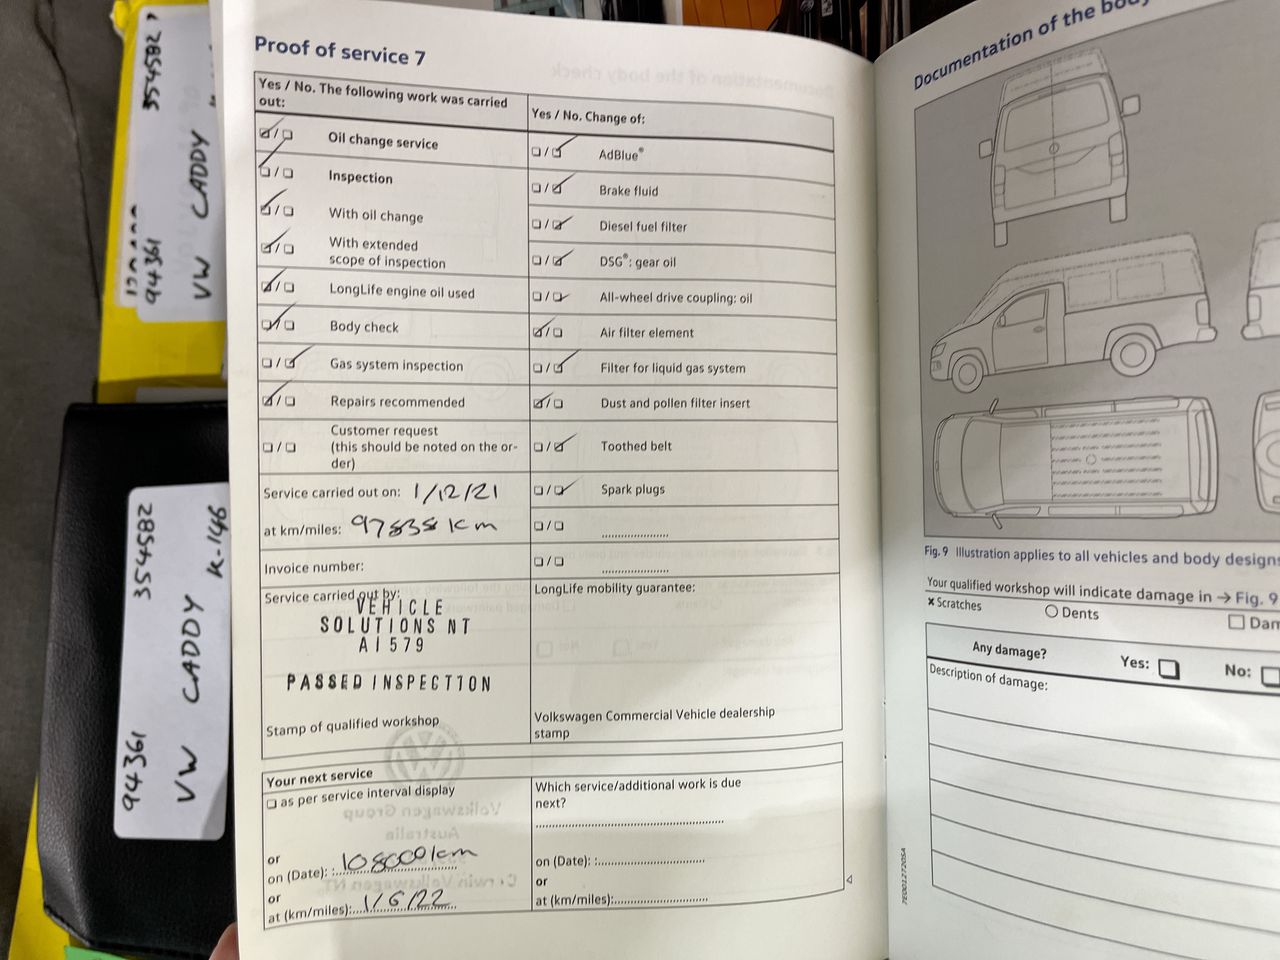 354582
94361
VW CADDY
354582
94361
VW CADDY K-146
Proof of service 7
Yes / No. The following work was carried
out:
Oil change service
Inspection
With oil change
With extended
scope of inspection
LongLife engine oil used
Body check
Gas system inspection
Repairs recommended
Customer request
(this should be noted on the or-
der)
Service carried out on: 1/12/21
at km/miles: 97838 km
Invoice number:
Service carried out by:
VEHICLE
SOLUTIONS NT
AI579
PASSED INSPECTION
Stamp of qualified workshop
Yes / No. Change of:
AdBlue®
Brake fluid
Diesel fuel filter
DSG®: gear oil
All-wheel drive coupling: oil
Air filter element
Filter for liquid gas system
Dust and pollen filter insert
Toothed belt
Spark plugs
LongLife mobility guarantee:
Volkswagen Commercial Vehicle dealership
stamp
Your next service
as per service interval display
or
on (Date): 108000km
or
at (km/miles): 1/6/22
Which service/additional work is due
next?
on (Date):
or
at (km/miles):
Documentation of the body
Fig. 9 Illustration applies to all vehicles and body designs
Your qualified workshop will indicate damage in → Fig. 9
Scratches
Dents
Any damage? Yes: No:
Description of damage:
7E0012720SA